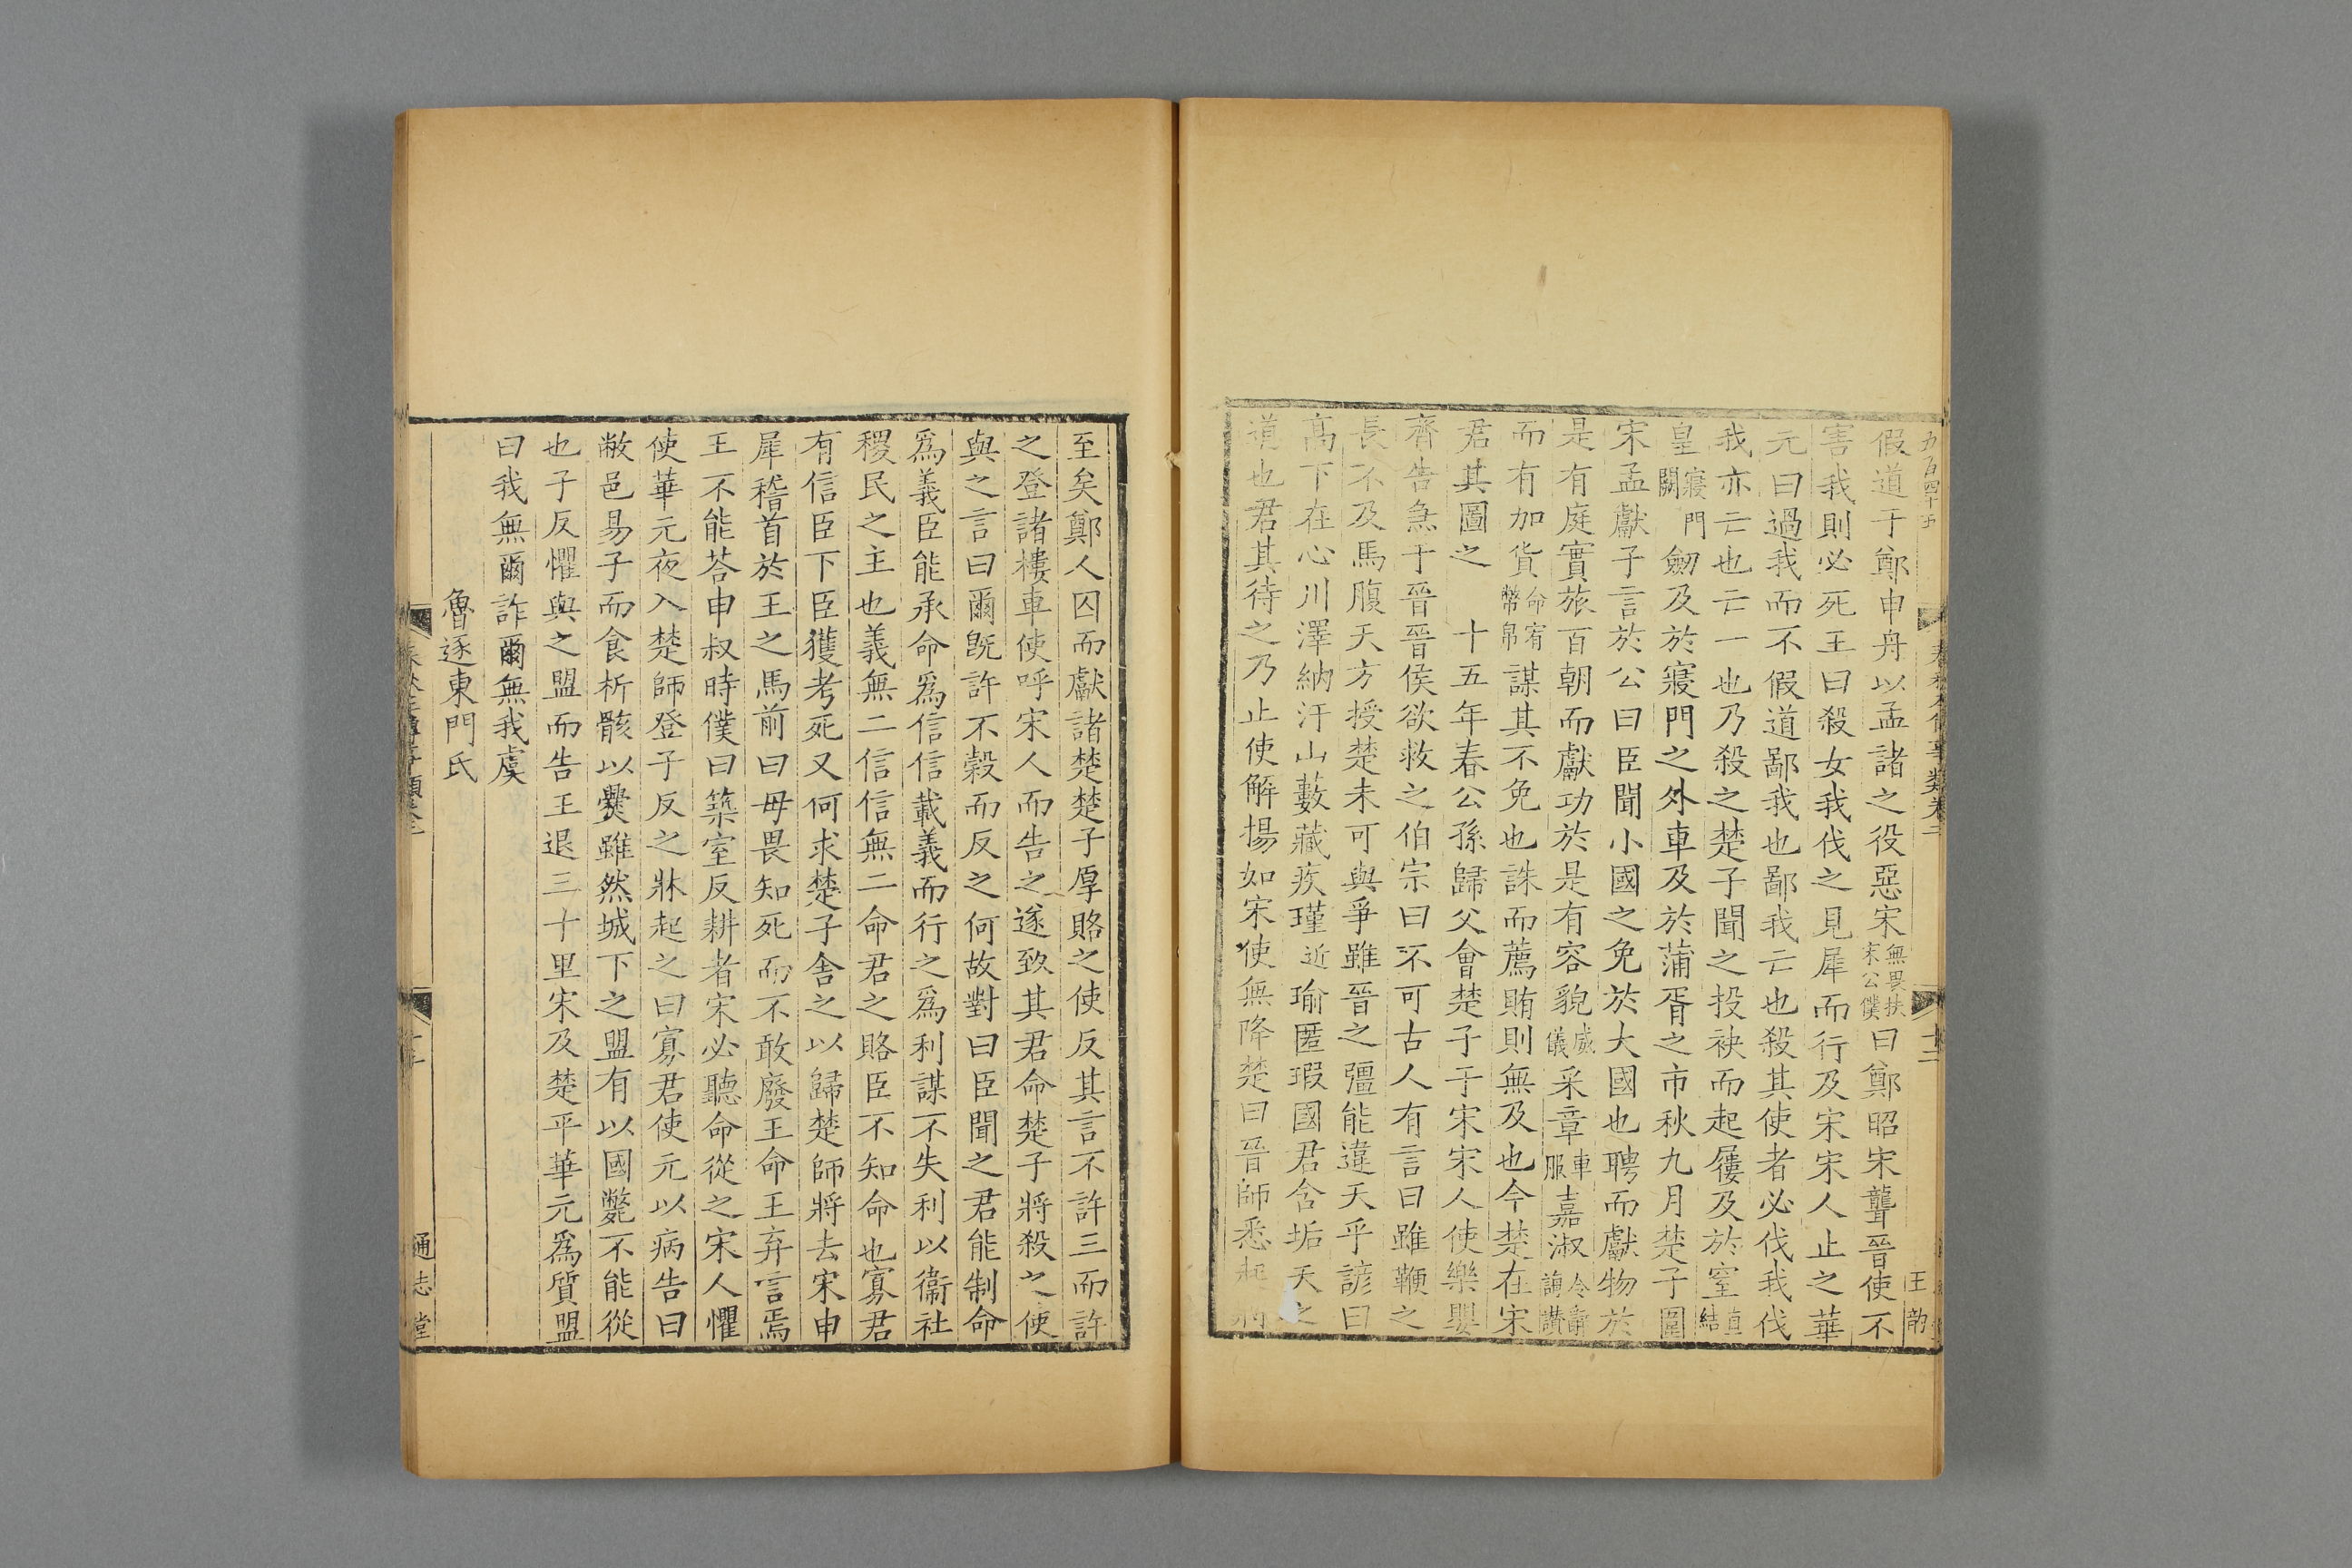 假道于鄭申舟以孟諸之役惡宋無畏抶宋公僕曰鄭昭宋聾晉使不
害我則必死王曰殺女我伐之見犀而行及宋宋人止之華
元曰過我而不假道鄙我也鄙我亡也殺其使者必伐我伐
我亦亡也亡一也乃殺之楚子聞之投袂而起屨及於窒直結
皇寢門闕劒及於寢門之外車及於蒲胥之市秋九月楚子圍
宋孟獻子言於公曰臣聞小國之免於大國也聘而獻物於
是有庭實旅百朝而獻功於是有容貌威儀采章車服嘉淑令辭讚
而有加貨命宥幣帛謀其不免也誅而薦賄則無及也今楚在宋
君其圖之 十五年春公孫歸父會楚子于宋宋人使樂嬰
齊告急于晉晉侯欲救之伯宗曰不可古人有言曰雖鞭之
長不及馬腹天方授楚未可與爭雖晉之彊能違天乎諺曰
高下在心川澤納汙山藪藏疾瑾近瑜匿瑕國君含垢天之
道也君其待之乃止使解揚如宋使無降楚曰晉師悉起將
至矣鄭人囚而獻諸楚楚子厚賂之使反其言不許三而許
之登諸樓車使呼宋人而告之遂致其君命楚子將殺之使
與之言曰爾旣許不穀而反之何故對曰臣聞之君能制命
爲義臣能承命爲信信載義而行之爲利謀不失利以衞社
稷民之主也義無二信信無二命君之賂臣不知命也寡君
有信臣下臣獲考死又何求楚子舍之以歸楚師將去宋申
犀稽首於王之馬前曰毋畏知死而不敢廢王命王弃言焉
王不能荅申叔時僕曰築室反耕者宋必聽命從之宋人懼
使華元夜入楚師登子反之牀起之曰寡君使元以病告曰
敝邑易子而食析骸以爨雖然城下之盟有以國斃不能從
也子反懼與之盟而告王退三十里宋及楚平華元爲質盟
曰我無爾詐爾無我虞
魯逐東門氏
通志堂